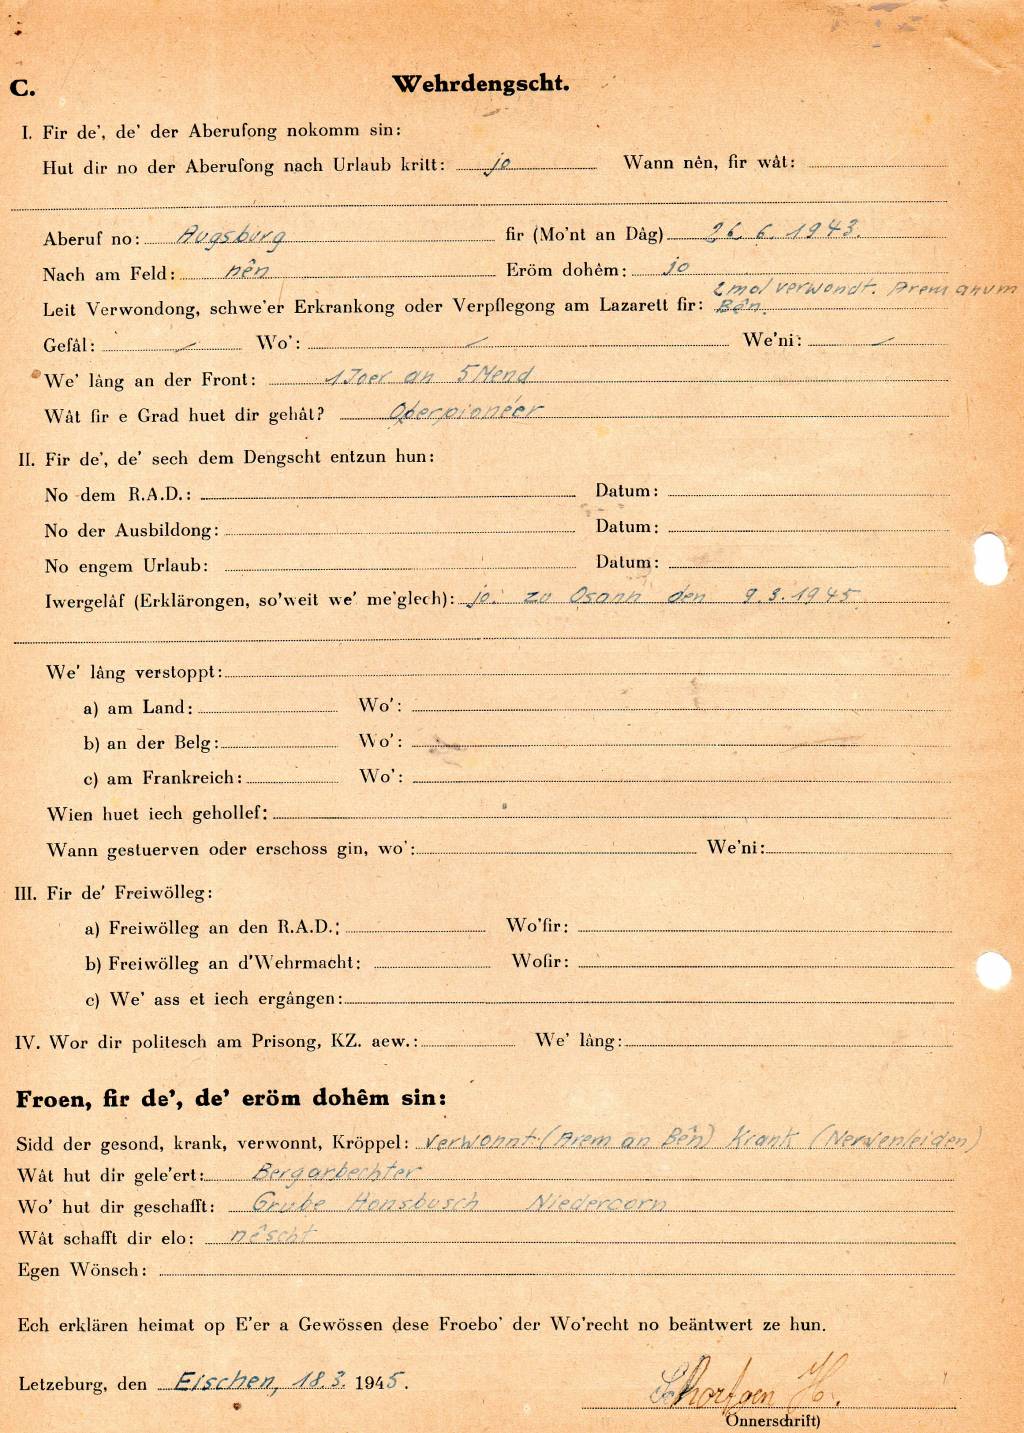 C. Wehrdengscht.
I. Fir de', de' der Aberufong nokomm sin:
Hut dir no der Aberufong nach Urlaub kritt: jo Wann nên, fir wât:
Aberuf no: Augsburg fir (Mo'nt an Dâg) 26. 6. 1943.
Nach am Feld: nên Eröm dohêm: jo
2 mol verwondt. Arem an um
Leit Verwondong, schwe'er Erkrankong oder Verpflegong am Lazarett fir: Bên.
Gefâl: / Wo': / We'ni: /
We' lâng an der Front: 1 Joer an 5 Mend
Wât fir e Grad huet dir gehât? Oberpionéer
II. Fir de', de' sech dem Dengscht entzun hun:
No dem R.A.D.: Datum:
No der Ausbildong: Datum:
No engem Urlaub: Datum:
Iwergelâf (Erklärongen, so'weit we' me'glech): jo. zu Osann den 9.3.1945
We' lâng verstoppt:
a) am Land: Wo':
b) an der Belg: Wo':
c) am Frankreich: Wo':
Wien huet iech gehollef:
Wann gestuerven oder erschoss gin, wo': We'ni:
III. Fir de' Freiwölleg:
a) Freiwölleg an den R.A.D.: Wo'fir:
b) Freiwölleg an d'Wehrmacht: Wofir:
c) We' ass et iech ergângen:
IV. Wor dir politesch am Prisong, KZ. aew.: We' lâng:
Froen, fir de', de' eröm dohêm sin:
Sidd der gesond, krank, verwonnt, Kröppel: verwonnt (Arem an Bên) Krank (Nervenleiden)
Wât hut dir gele'ert: Bergarbechter
Wo' hut dir geschafft: Grube Honsbusch Niedercorn
Wât schafft dir elo: nêscht
Egen Wönsch:
Ech erklären heimat op E'er a Gewössen dese Froebo' der Wo'recht no beäntwert ze hun.
Letzeburg, den Eischen, 18.3. 1945.
Onnerschrift)